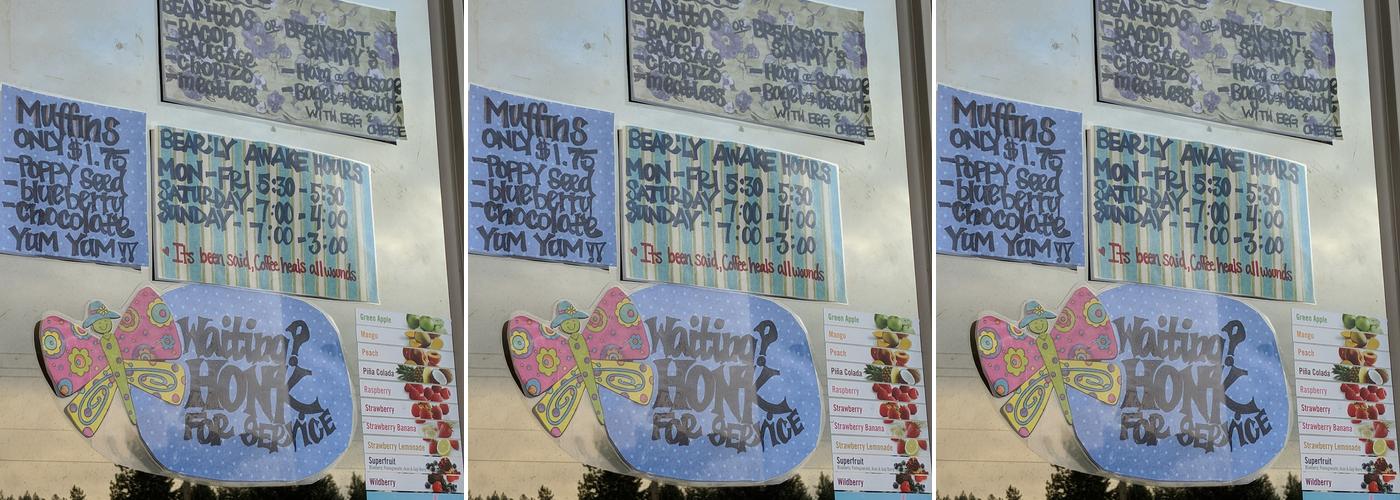 BEARittOS
-BACON
-SAUSAGE
-CHORIZO
-meatless
OR BREAKFAST
SAMMY'S
-Ham OR Sausage
-Bagel or Biscuit
WITH EGG &
CHEESE
Muffins
ONLY $1.75
-POPPY Seed
-blueberry
-chocolate
YUM YUM!!
BEAR-LY AWAKE HOURS
MON-FRI 5:30 - 5:30
SATURDAY - 7:00 - 4:00
SUNDAY - 7:00 - 3:00
♥ It's been said, Coffee heals all wounds
Waiting?
HONK
FOR SERVICE
Green Apple
Mango
Peach
Piña Colada
Raspberry
Strawberry
Strawberry Banana
Strawberry Lemonade
Superfruit
Wildberry
BEARittOS
-BACON
-SAUSAGE
-CHORIZO
-meatless
OR BREAKFAST
SAMMY'S
-Ham OR Sausage
-Bagel or Biscuit
WITH EGG &
CHEESE
Muffins
ONLY $1.75
-POPPY Seed
-blueberry
-chocolate
YUM YUM!!
BEAR-LY AWAKE HOURS
MON-FRI 5:30 - 5:30
SATURDAY - 7:00 - 4:00
SUNDAY - 7:00 - 3:00
♥ It's been said, Coffee heals all wounds
Waiting?
HONK
FOR SERVICE
Green Apple
Mango
Peach
Piña Colada
Raspberry
Strawberry
Strawberry Banana
Strawberry Lemonade
Superfruit
Wildberry
BEARittOS
-BACON
-SAUSAGE
-CHORIZO
-meatless
OR BREAKFAST
SAMMY'S
-Ham OR Sausage
-Bagel or Biscuit
WITH EGG &
CHEESE
Muffins
ONLY $1.75
-POPPY Seed
-blueberry
-chocolate
YUM YUM!!
BEAR-LY AWAKE HOURS
MON-FRI 5:30 - 5:30
SATURDAY - 7:00 - 4:00
SUNDAY - 7:00 - 3:00
♥ It's been said, Coffee heals all wounds
Waiting?
HONK
FOR SERVICE
Green Apple
Mango
Peach
Piña Colada
Raspberry
Strawberry
Strawberry Banana
Strawberry Lemonade
Superfruit
Wildberry